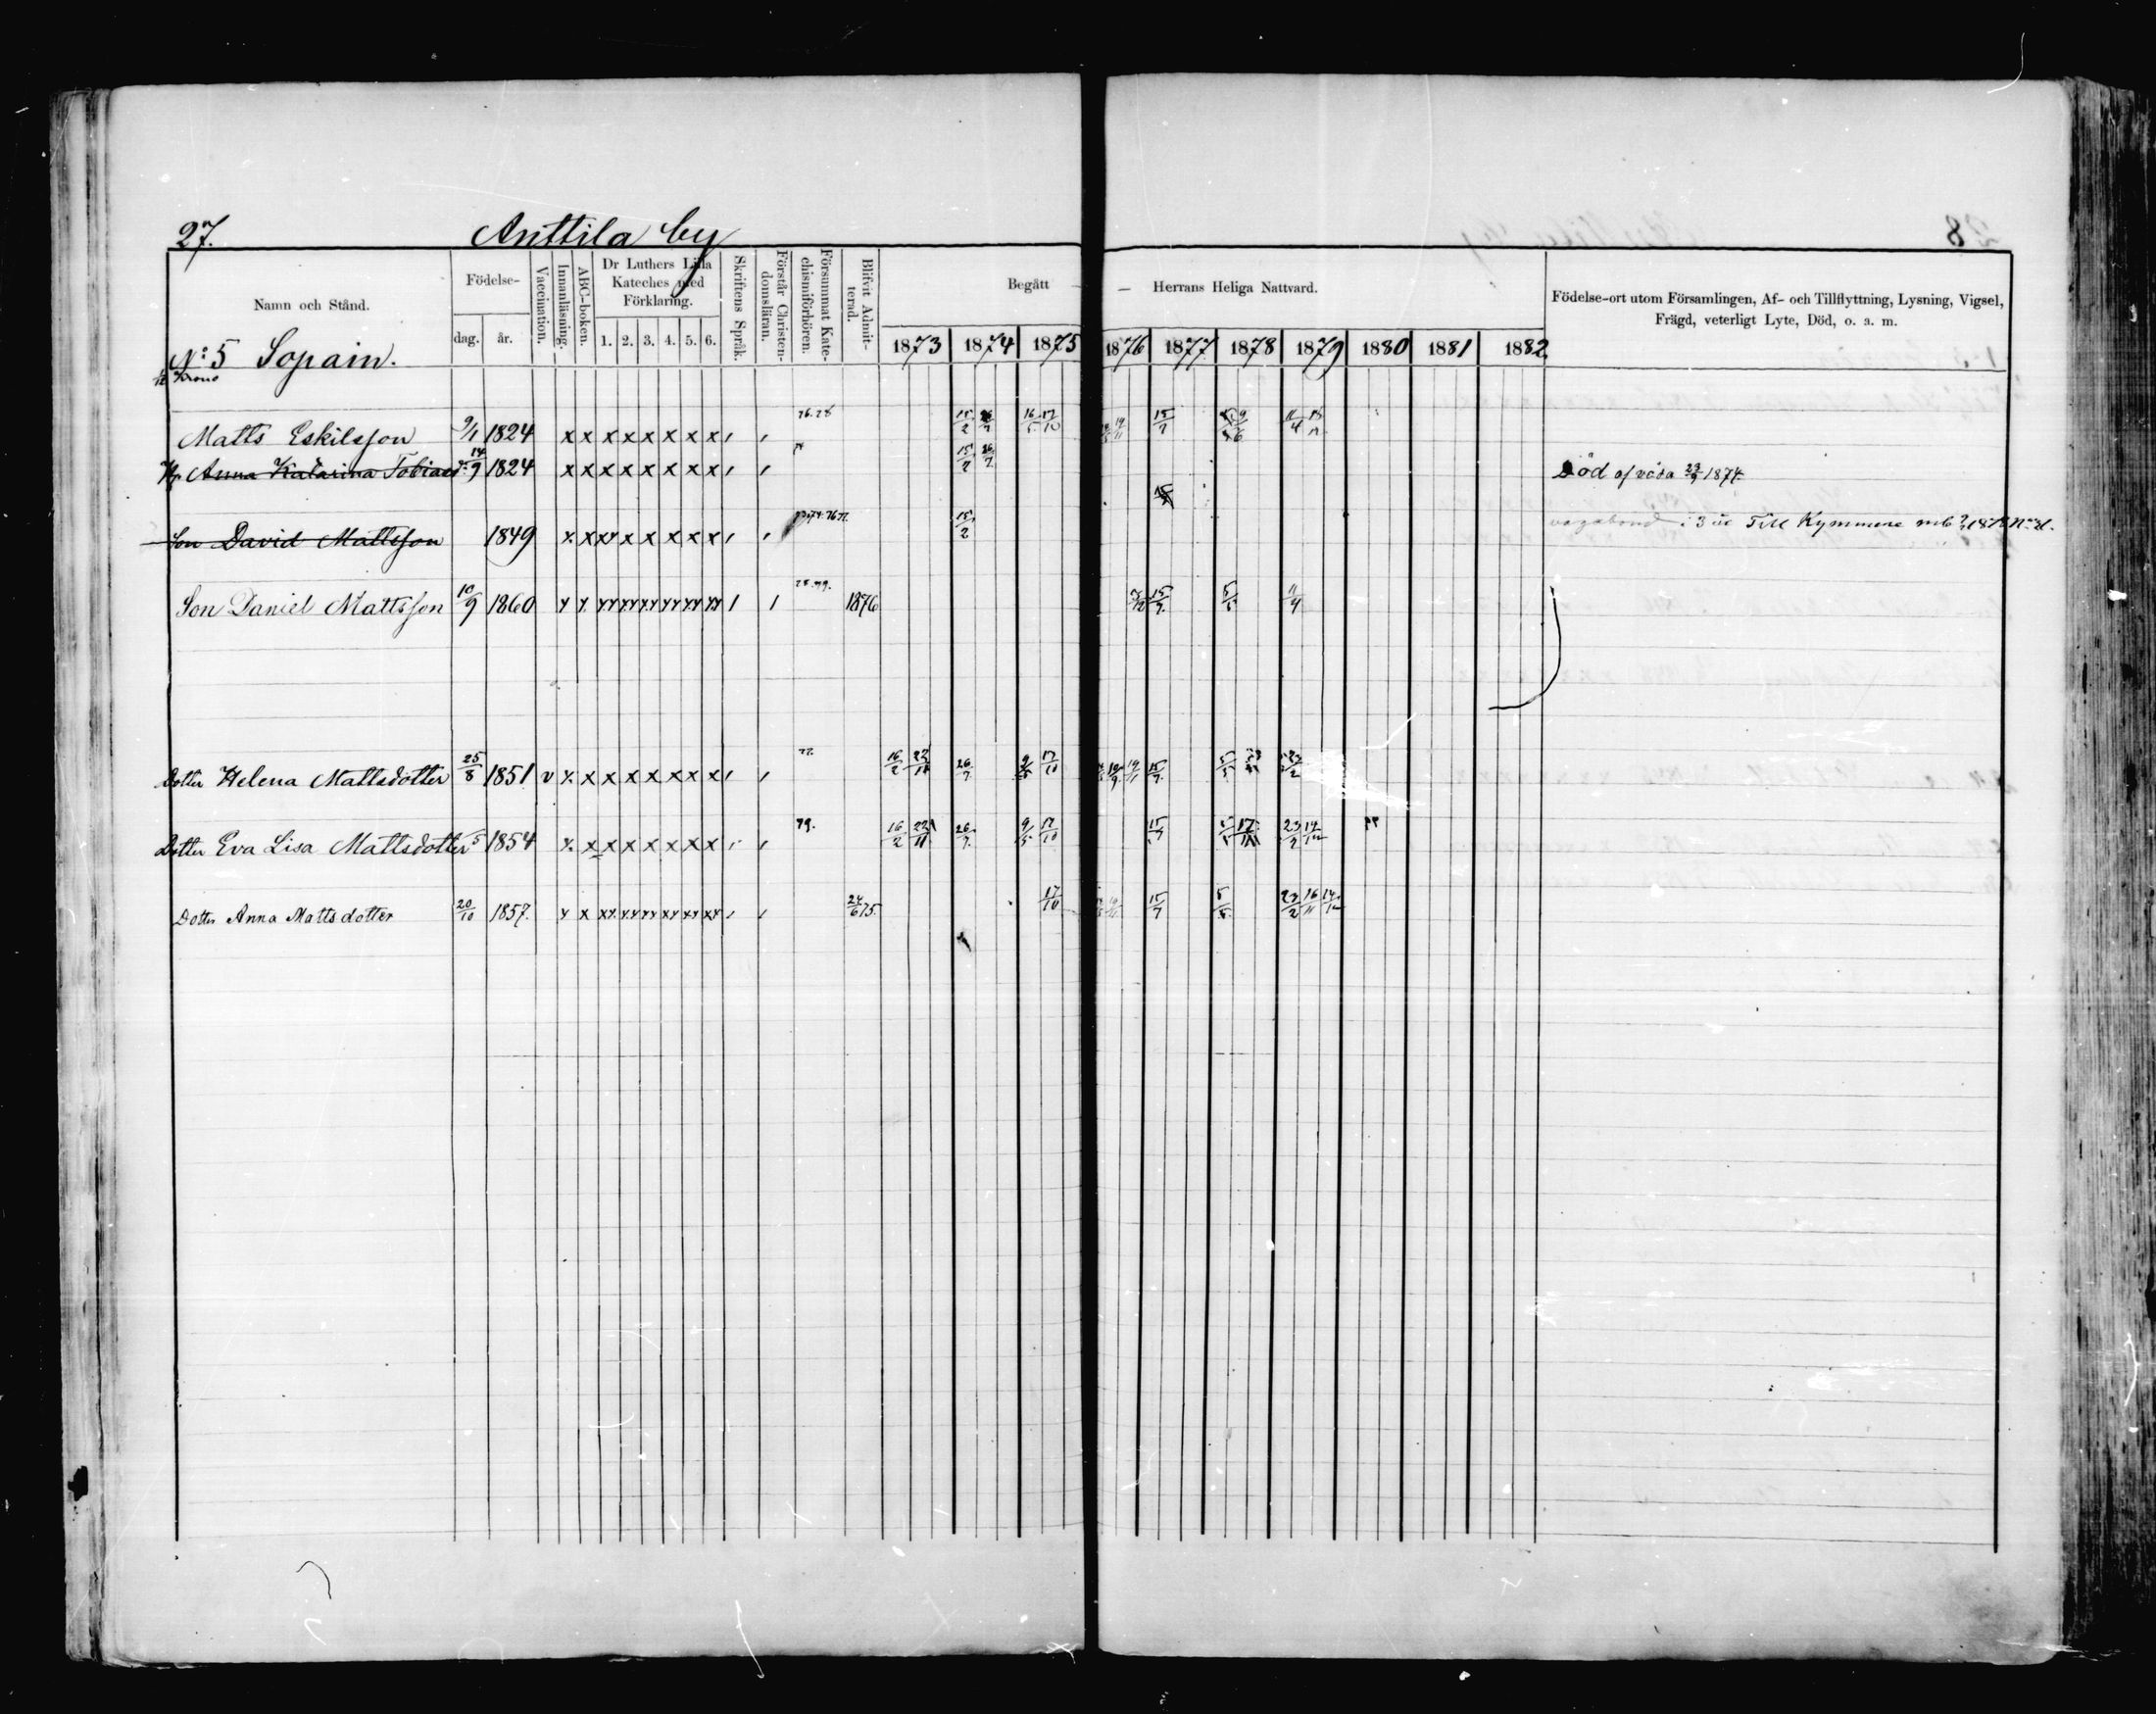 27.
Anttila by
28
Namn och Stånd.
Födelse-
dag.
år.
Vaccination.
Innanläsning.
ABC-boken.
Dr Luthers Lilla
Kateches med
Förklaring.
1. 2. 3. 4. 5. 6.
Skriftens Språk.
Förstår Christen-
domsläran.
Försummat Kate-
chismiförhören.
Blifvit Admit-
terad.
Begått — — Herrans Heliga Nattvard.
1873 1874 1875 1876 1877 1878 1879 1880 1881 1882
Födelse-ort utom Församlingen, Af- och Tillflyttning, Lysning, Vigsel,
Frägd, veterligt Lyte, Död, o. a. m.
No: 5 Sopain.
1/2 Krono
Matts Eskilsson 9/1 1824 x x x x x x x x 76.78 15/2 26/7 16/5 17/10 15/7
Anna Katarina Tobiasd: 14/9 1824 x x x x x x x x 15/2 26/7 Död af våda 23/9 1874.
Son David Mattsson 1849 x x xx x x x x x 15/2 vagabond i 3 Till Kymmene 1878
Son Daniel Mattsson 10/9 1860 x x xx xx xx xx xx xx 1 1 78.79. 1876 15/7 5/5 11/4
Dotter Helena Mattsdotter 25/8 1851 v x x x x x x x x 77. 16/2 23/11 26/7 9/5 17/10 19/11 15/7 5/5
Dotter Eva Lisa Mattsdotter 5 1854 x x x x x x x x 79. 16/2 23/11 26/7 9/5 17/10 15/7 17/11 23/2 14/12
Dotter Anna Mattsdotter 20/10 1857. x x xx xx xx xx xx xx 24/6 75. 17/10 15/7 5/5 23/2 16/11 14/12